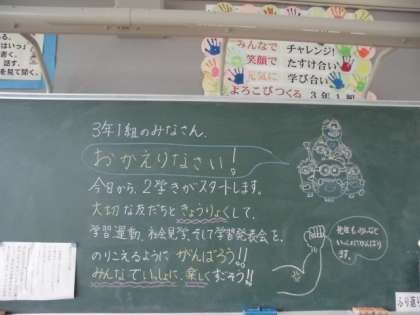 みんなで チャレンジ!
笑顔で たすけ合い
元気に 学び合い
よろこびつくる 3年1組
はいっ」
書く。
話す。
を見て聞く。
3年1組のみなさん、
おかえりなさい!
今日から、2学きがスタートします。
大切な友だちときょうりょくして、
学習、運動、社会見学、そして学習発表会を、
のりこえるように がんばろう!!
みんなでいっしょに、楽しくすごそう!!
先生も、みんなと
いっしょにがんばり
ます。